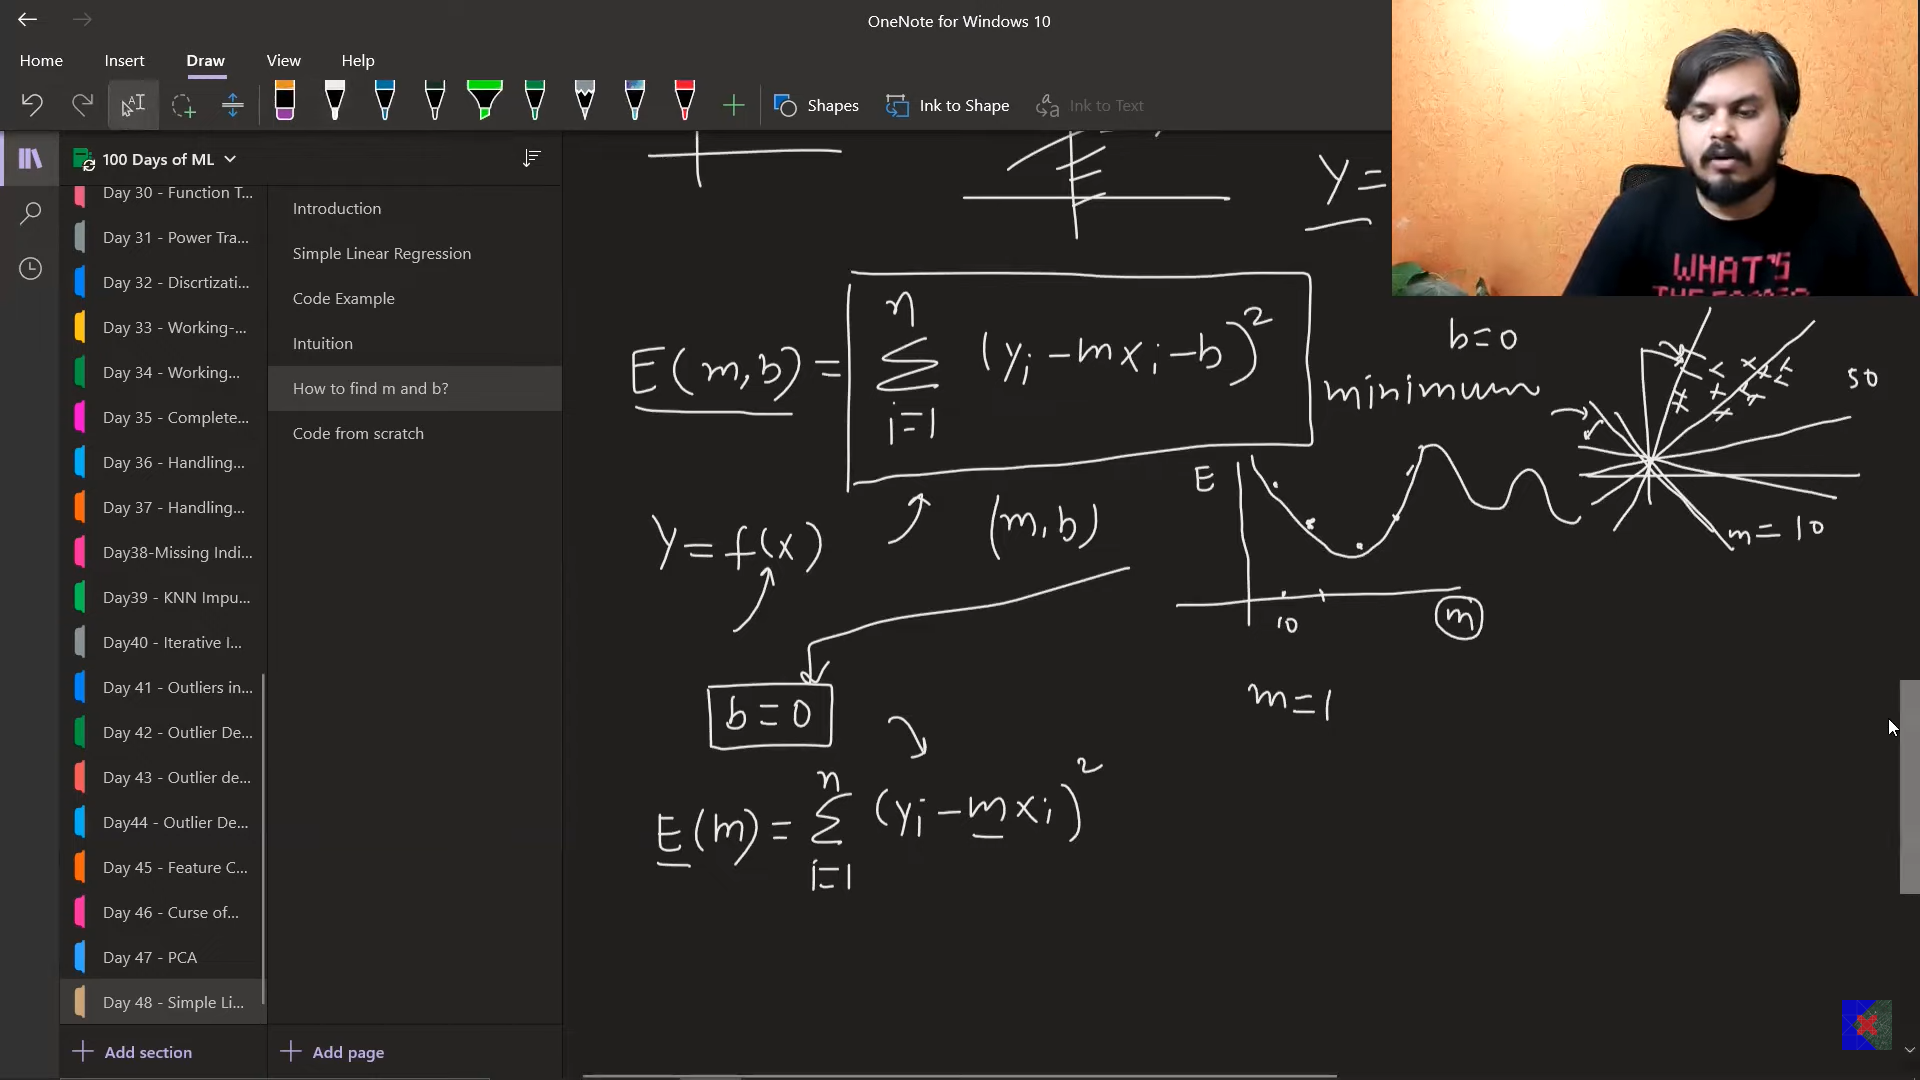 OneNote for Windows 10
Home Insert Draw View Help
Shapes Ink to Shape Ink to Text
100 Days of ML
Day 30 - Function T...
Day 31 - Power Tra...
Day 32 - Discrtizati...
Day 33 - Working-...
Day 34 - Working...
Day 35 - Complete...
Day 36 - Handling...
Day 37 - Handling...
Day38-Missing Indi...
Day39 - KNN Impu...
Day40 - Iterative I...
Day 41 - Outliers in...
Day 42 - Outlier De...
Day 43 - Outlier de...
Day44 - Outlier De...
Day 45 - Feature C...
Day 46 - Curse of...
Day 47 - PCA
Day 48 - Simple Li...
Add section
Introduction
Simple Linear Regression
Code Example
Intuition
How to find m and b?
Code from scratch
Add page
Y =
E(m,b) = n∑i=1 (yi - mxi - b)²
minimum
b=0
50
m = 10
Y = f(x)
(m,b)
E
10
m
b = 0
m = 1
E(m) = n∑i=1 (yi - mxi)²
WHAT'S